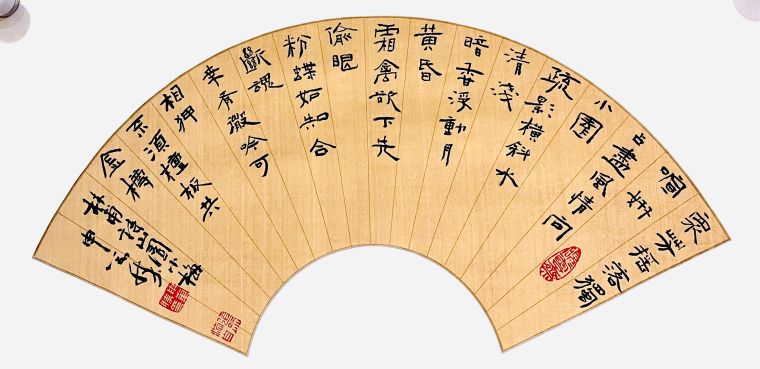 眾芳搖落獨
暄妍
占盡風情向
小園
疏影橫斜水
清淺
暗香浮動月
黃昏
霜禽欲下先
偷眼
粉蝶如知合
斷魂
幸有微吟可
相狎
不須檀板共
金樽
林逋詩山園小梅